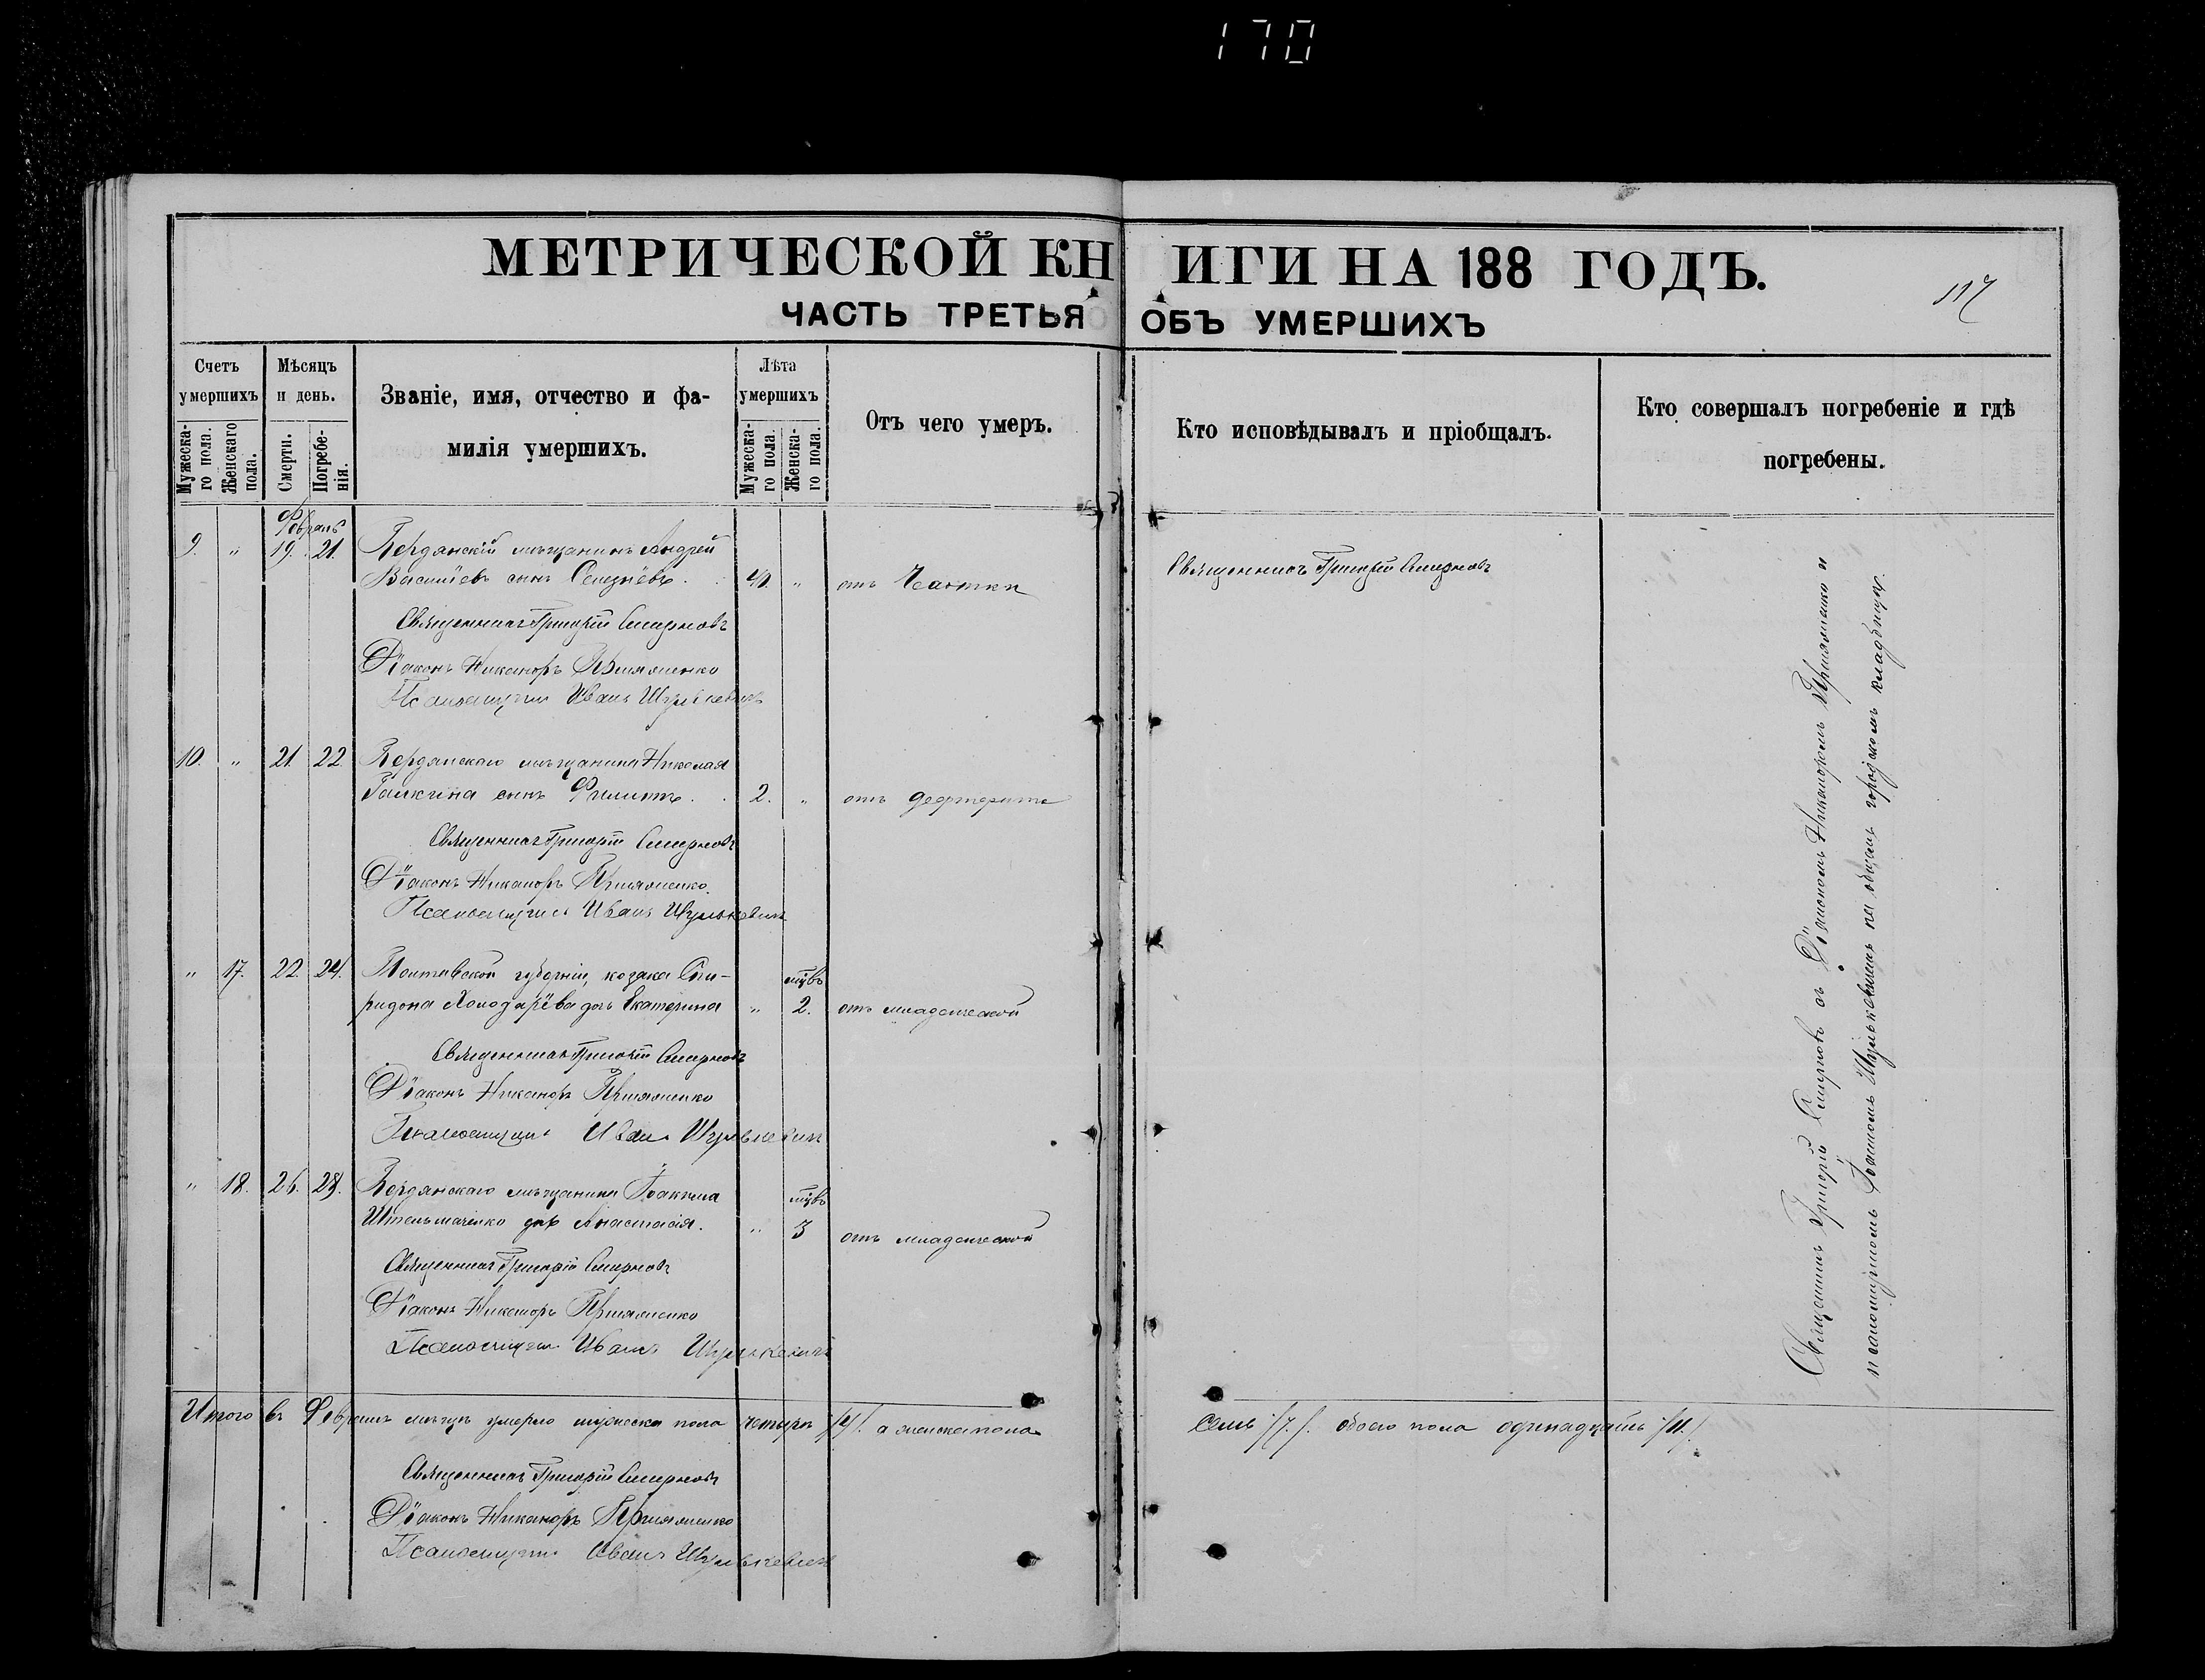 170
МЕТРИЧЕСКОЙ КНИГИ НА 188 ГОДЪ.
117
ЧАСТЬ ТРЕТЬЯ ОБЪ УМЕРШИХЪ
Счетъ умершихъ
Мужеска-го пола.
Женскаго пола.
Мѣсяцъ и день.
Смерти.
Погребе-нія.
Званіе, имя, отчество и фа-
милія умершихъ.
Лѣта умершихъ
Мужеска-го пола.
Женска-го пола.
Отъ чего умеръ.
Кто исповѣдывалъ и пріобщалъ.
Кто совершалъ погребеніе и гдѣ
погребены.
Февраль
9. " 19. 21. Бердянскій мѣщанинъ Андрей
Василіевъ сынъ Селезнёвъ. 40. " отъ Чахотки
Священникъ Григорій Смирновъ
Священникъ Григорій Смирновъ
Діаконъ Никаноръ
Псаломщикъ Иванъ Шулькевичъ
10. " 21. 22 Бердянскаго мѣщанина Николая
Галкина сынъ Филиппъ. 2. " отъ дефтерита
Священникъ Григорій Смирновъ
Діаконъ Никаноръ
Псаломщикъ Иванъ Шулькевичъ
" 17. 22. 24. Полтавской губерніи, козака Спи-
ридона Холодарёва дочь Екатерина " мцвъ 2. отъ младенческой
Священникъ Григорій Смирновъ
Діаконъ Никаноръ
Псаломщикъ Иванъ Шулькевичъ
" 18. 26. 28. Бердянскаго мѣщанина Іоакима
Штельмаченко дочь Анастасія. " мцвъ 3 отъ младенческой
Священникъ Григорій Смирновъ
Діаконъ Никаноръ
Псаломщикъ Иванъ Шулькевичъ
Священникъ Григорій Смирновъ съ Діакономъ Никаноромъ и
псаломщикомъ Іоанномъ Шулькевичемъ на общемъ городскомъ кладбищѣ.
Итого въ Февралѣ мѣсцѣ умерло мужеска пола четыре /4/. а женска пола
семь /7./. обоего пола одинадцать /11./
Священникъ Григорій Смирновъ
Діаконъ Никаноръ
Псаломщикъ Иванъ Шулькевичъ